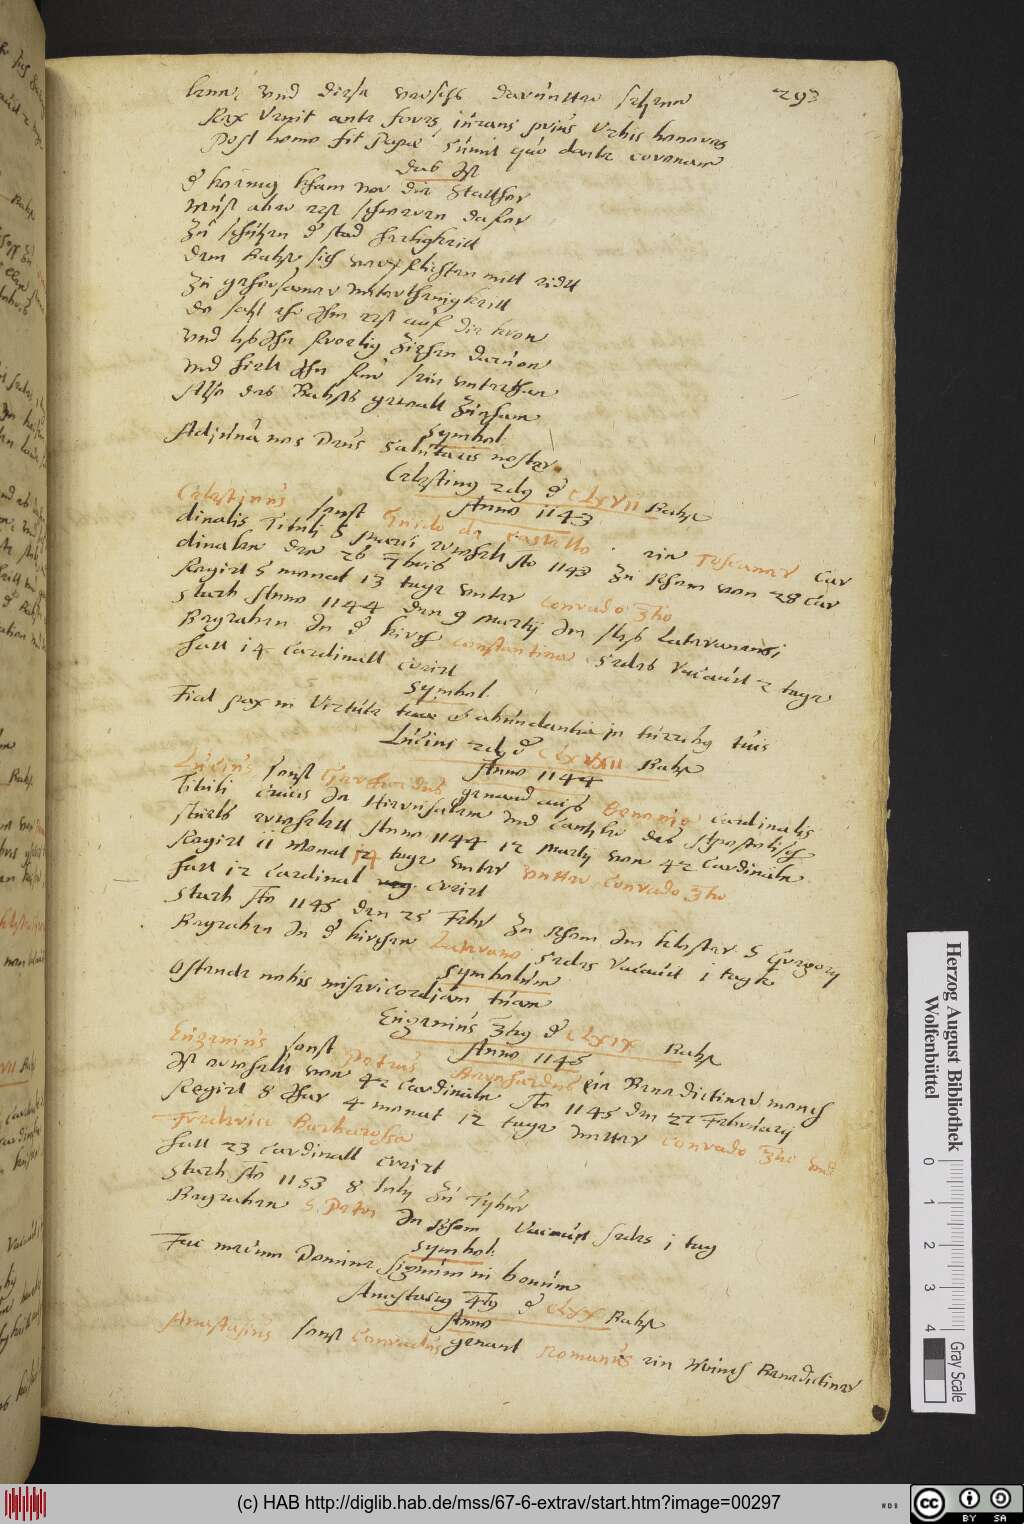 293
lenne, vnd diese versch darunter setzenn
Rex venit ante fores, iurans prius urbis honores
Post homo fit Papae sumit quo dante coronam
das Ist
d konnig kham vor die Statthor
must aber erst schweren dafor
Zu schützen d stad herligkeitt
dem Babst sich verpflichten mitt eidtt
Zu gehorsamer vnterthenigkeitt
do satzt ehr Ihm erst auf die kron
vnd lies Ihn froelig ziehen daruon
vnd hielt Ihn fur sein vnterthan
Also des Babsts gewalt
Symbol.
Adiuua nos Deus salutaris noster.
Celestinus 2dus d CLXVII Babst
Anno 1143
Celestinus sonst Guido de Castello ein Toscaner Car
dinalis Tituli S Marci erwehlt Ao 1143 zu Rhom von 28 Car
dinalen den 26 7bris
Regirt 5 monat 13 tage vnter Conrado 3tio
starb Anno 1144 den 9 Martij Im schlos Lateranensi
Begraben In d kirch Constantina Sedes Vacauit 2 tage
hatt 14 Cardinall creirt
Symbol.
Fiat pax in Virtute tua et abundantia in turribus tuis
Lucius 2dus d CLXVIII Babst
Anno 1144
Lucius sonst Gerhardus genand aus Bononia Cardinalis
Tituli crucis In Hierusalem vnd Cantzler des Apostolisch
stuels erwehlett Anno 1144 12 Martij von 42 Cardinalen
Regirt 11 Monat 14 tage vnter Conrado 3tio
hatt 12 Cardinal creirt
starb Ao 1145 den 25 Febr Zu Rhom Im kloster S Gregorij
Begraben In d kirchen Laterano Sedes Vacauit 1 tagk
Symbolum
Ostende nobis misericordiam tuam
Eugenius 3tius d CLXIX Babst
Anno 1145
Eugenius sonst Petrus Bernhardus ein Benedictiner monch
Ist erwehlett von 42 Cardinalen Ao 1145 den 27 Februarij
Regirt 8 Jhar 4 monat 12 tage vnter Conrado 3tio vnd
Frederici Barbarossa
hatt 23 Cardinall creirt
starb Ao 1153 8 July Zu Tybur
Begraben S. Petri In Rhom Vacauit Sedes 1 tag
Symbol.
Fac mecum Domine signum in bonum
Anastasius 4tus d CLXX Babst
Anno
Anastasius sonst Conradus genant Romanus ein Monch Benedictiner
Herzog August Bibliothek
Wolfenbüttel
0 1 2 3 4
Gray Scale
(c) HAB http://diglib.hab.de/mss/67-6-extrav/start.htm?image=00297
WDB
CC BY SA